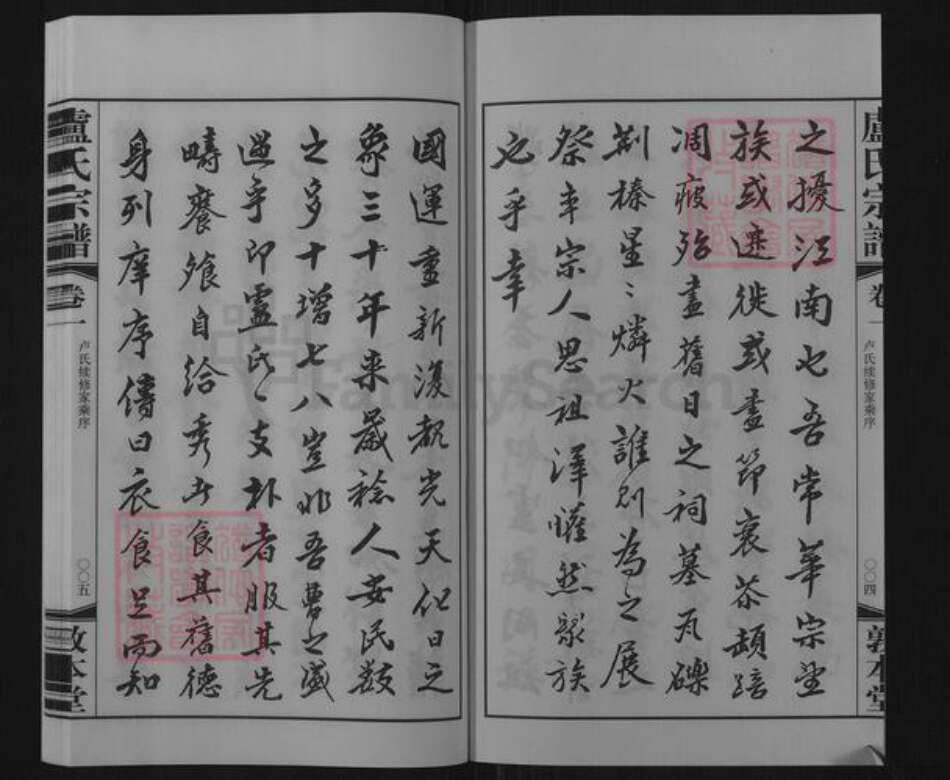 盧氏宗譜
卷一
卢氏续修家乘序
〇〇四
敦本堂
之擾江南也吾常華宗望
族或遷徙或盡節衰茶顛踣
凋瘵殆盡舊日之祠墓瓦礫
荊榛星々燐火誰則為之展
祭乎宗人思祖澤懼然聚族
也乎幸
國運重新復覩光天化日之
象三十年来歲稔人安民數
之多十增七八豈非吾曹之盛
遇乎即盧氏一支朴者服其先
疇饔飧自給秀者食其舊德
身列庠序傳曰衣食足而知
盧氏宗譜
卷一
卢氏续修家乘序
〇〇五
敦本堂
FamilySearch